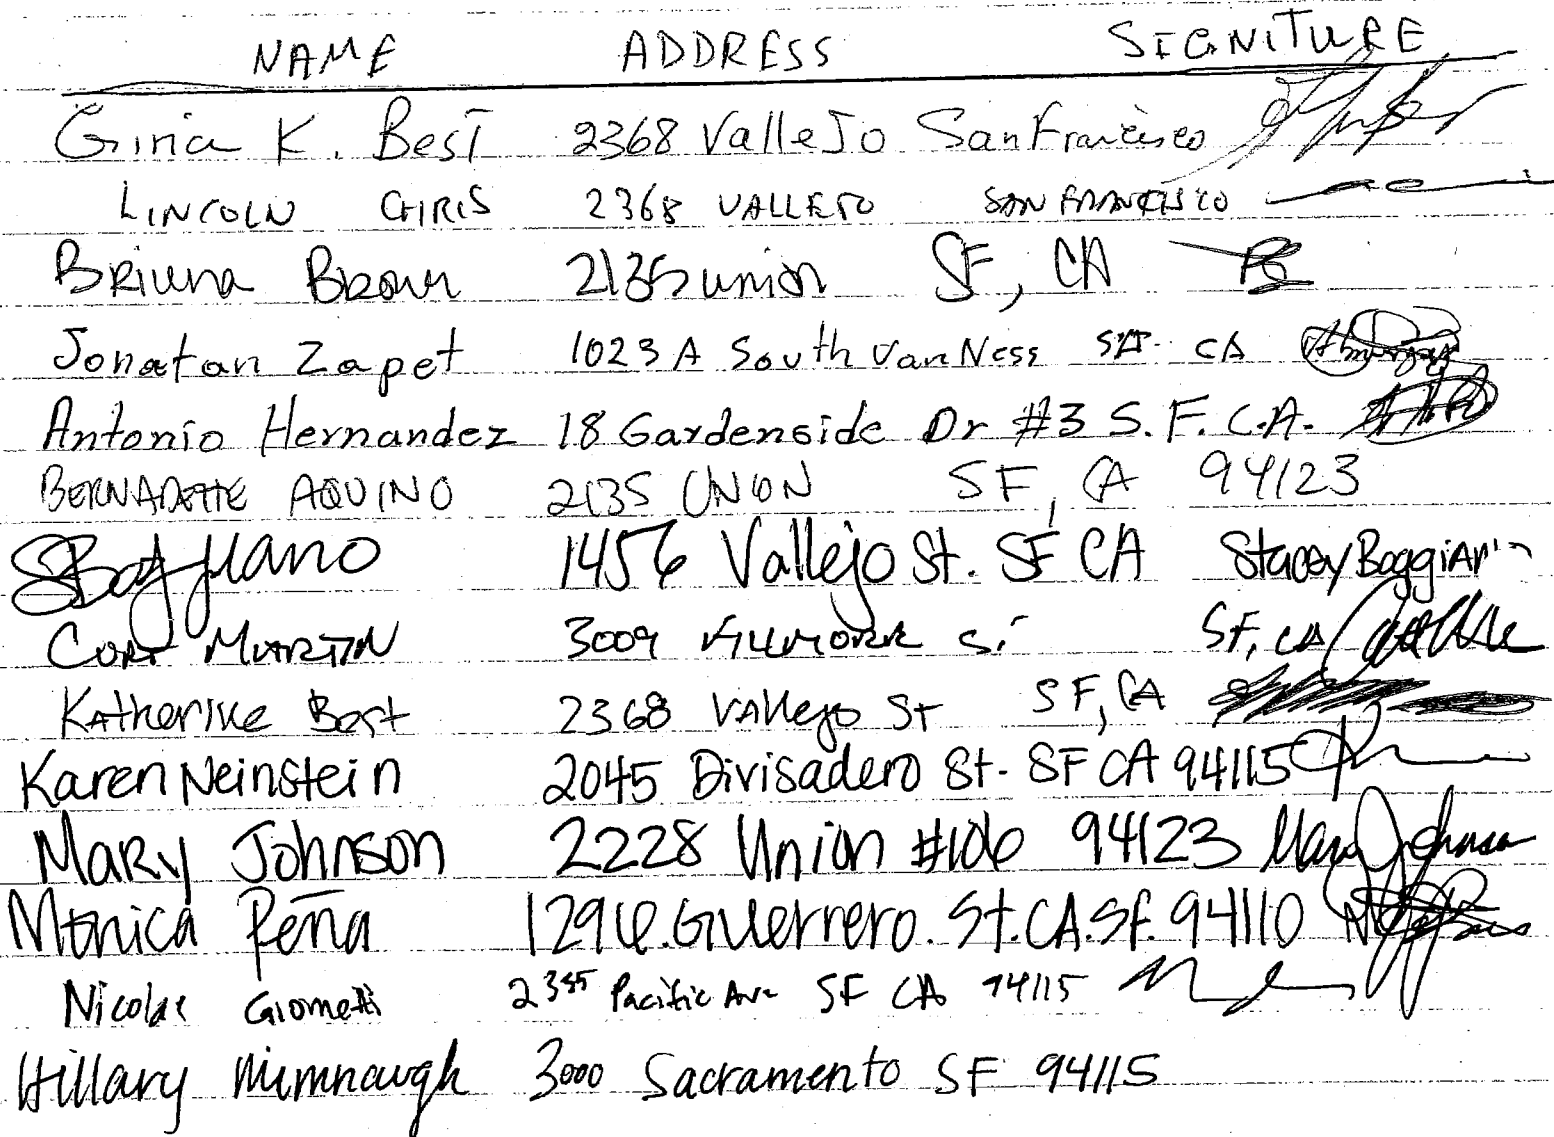 NAME ADDRESS SIGNITURE
Gina K. Best 2368 Vallejo San Francisco
LINCOLN CHRIS 2368 VALLEJO SAN FRANCISCO
BRIUNA BROWN 2135 union SF, CA
Jonatan Zapet 1023 A South Van Ness SF CA
Antonio Hernandez 18 Gardenside Dr #3 S.F. C.A.
BERNADETTE AQUINO 2135 UNION SF, CA 94123
1456 Vallejo St. SF CA Stacey
MARTIN 3009 FILLMORE ST SF, CA
Katherine Best 2368 Vallejo St SF, CA
Karen Neinstein 2045 Divisadero St. SF CA 94115
MARY Johnson 2228 Union #106 94123 Mary Johnson
Monica Peña 1296.Guerrero.St.CA.SF.94110
Pacific Ave SF CA 94115
Hillary Mimnaugh 3000 Sacramento SF 94115